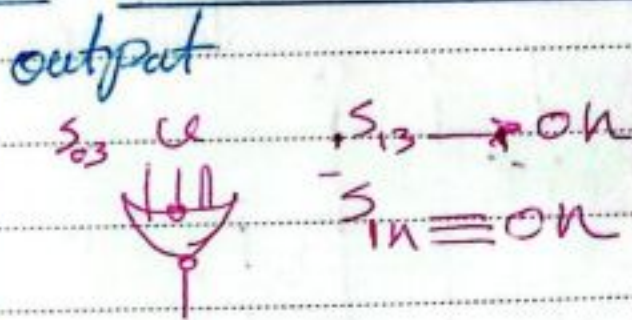 output
S03 U S13 → on
S1n ≡ on